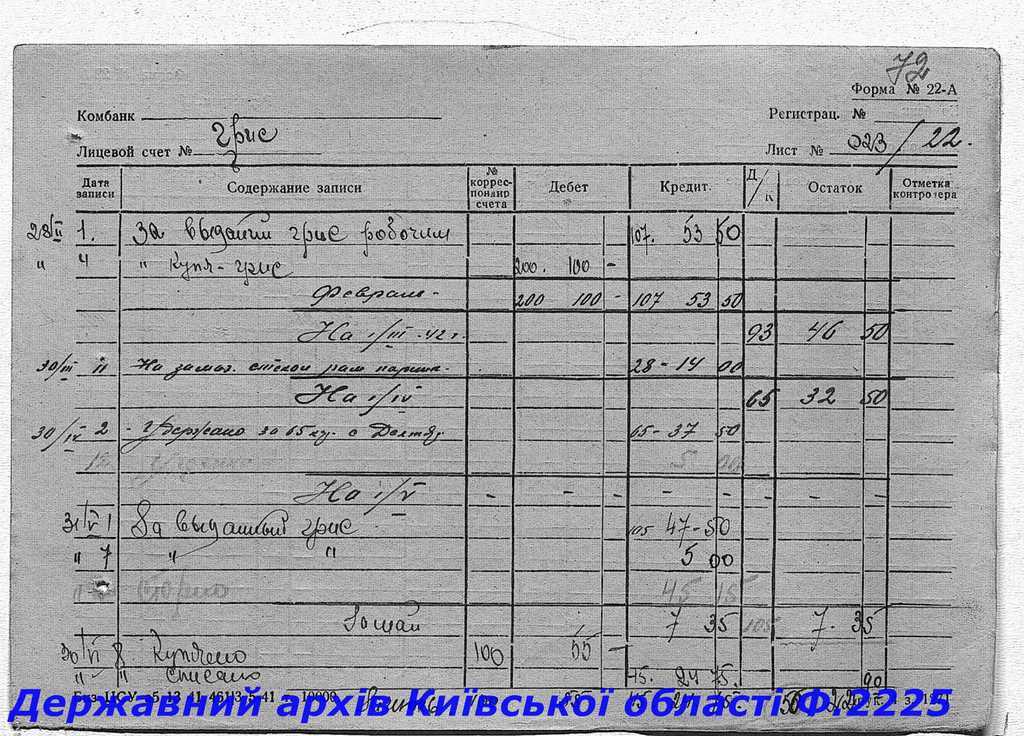 72
Форма № 22-А
Комбанк
Регистрац. №
Лицевой счет № Грис
Лист № 023/22.
Дата записи Содержание записи № коррес- пондир счета Дебет Кредит. Д/К Остаток Отметка контролера
28/II 1. За выданий грис робочим 107. 53 50
" 4 " Купл-грис 200. 100 -
Февраль- 200 100 - 107 53 50
На 1/III-42 г. 93 46 50
30/III 11 На замаз. рам 28-14 00
На 1/IV 65 32 50
30/IV 2 - Удержано за 65 кг. с 65-37 50
5 00
На 1/V - - - - - - -
31/V 1 За выданный грис 105 47-50
" 7 " " 5 00
45 15
За май 7 35 105 7. 35
30/VI 8 Куплено 100 55 -
" - " Списано 45. 24 75.
Державний архів Київської області Ф.2225